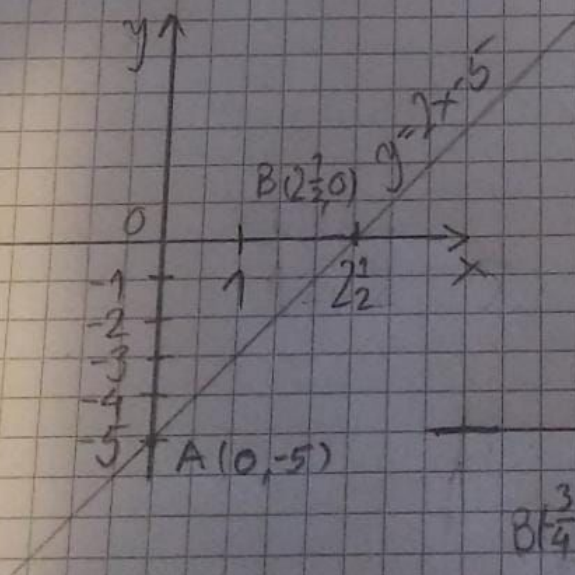 y
y=2x-5
B(2½,0)
0
x
1
2½
-1
-2
-3
-4
-5
A(0,-5)
B(-¾